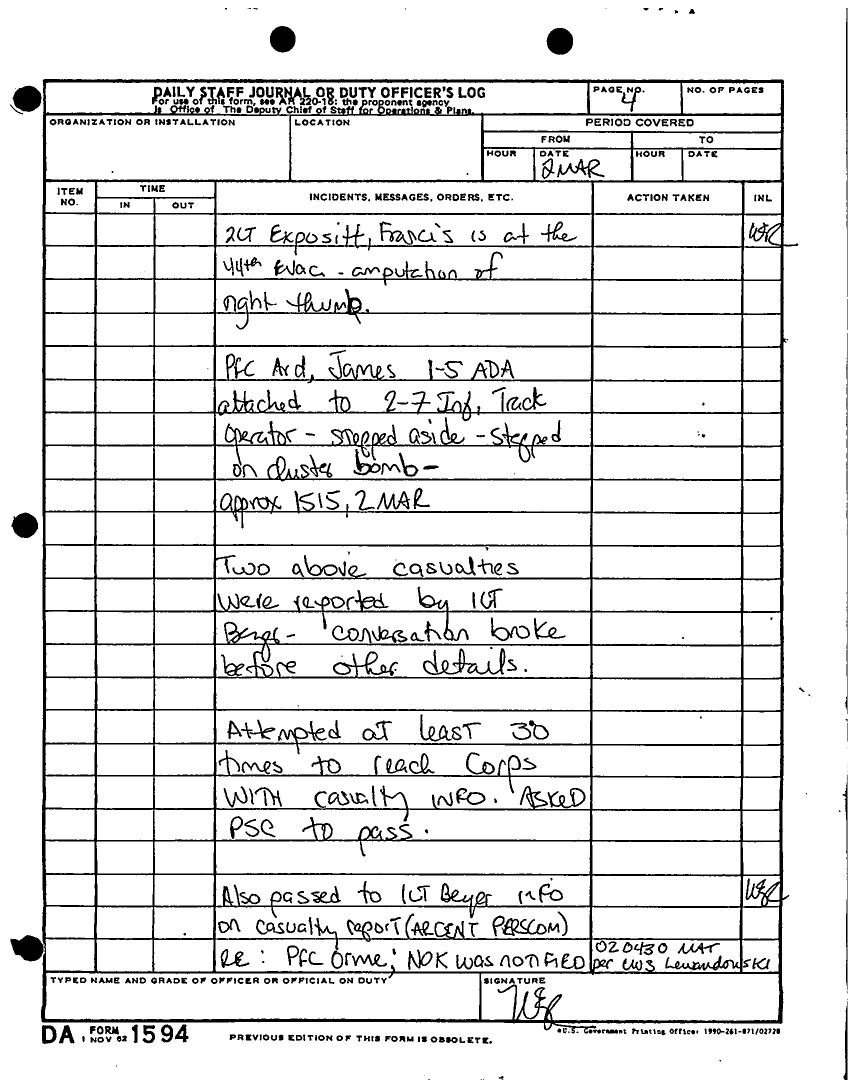 DAILY STAFF JOURNAL OR DUTY OFFICER'S LOG
For use of this form, see AR 220-15; the proponent agency
is Office of The Deputy Chief of Staff for Operations & Plans.
PAGE NO.
4
NO. OF PAGES
ORGANIZATION OR INSTALLATION
LOCATION
PERIOD COVERED
FROM
TO
HOUR
DATE
2 MAR
HOUR
DATE
ITEM NO.
TIME
IN
OUT
INCIDENTS, MESSAGES, ORDERS, ETC.
ACTION TAKEN
INL
2LT Expositt, Francis is at the
44th Evac - amputation of
right thumb.
PFC Ard, James 1-5 ADA
attached to 2-7 Inf, Track
Operator - stepped aside - stepped
on cluster bomb -
approx 1515, 2 MAR
Two above casualties
were reported by 1LT
conversation broke
before other details.
Attempted at least 30
times to reach Corps
WITH casualty INFO. ASKED
PSC to pass.
Also passed to 1LT Beyer info
on casualty report (ARCENT PERSCOM)
RE: PFC Orme; NOK WAS NOTIFIED
020430 MAR
per CW3 Lewandowski
TYPED NAME AND GRADE OF OFFICER OR OFFICIAL ON DUTY
SIGNATURE
DA FORM 1594
1 NOV 62
PREVIOUS EDITION OF THIS FORM IS OBSOLETE.
U.S. Government Printing Office: 1990-261-871/02728